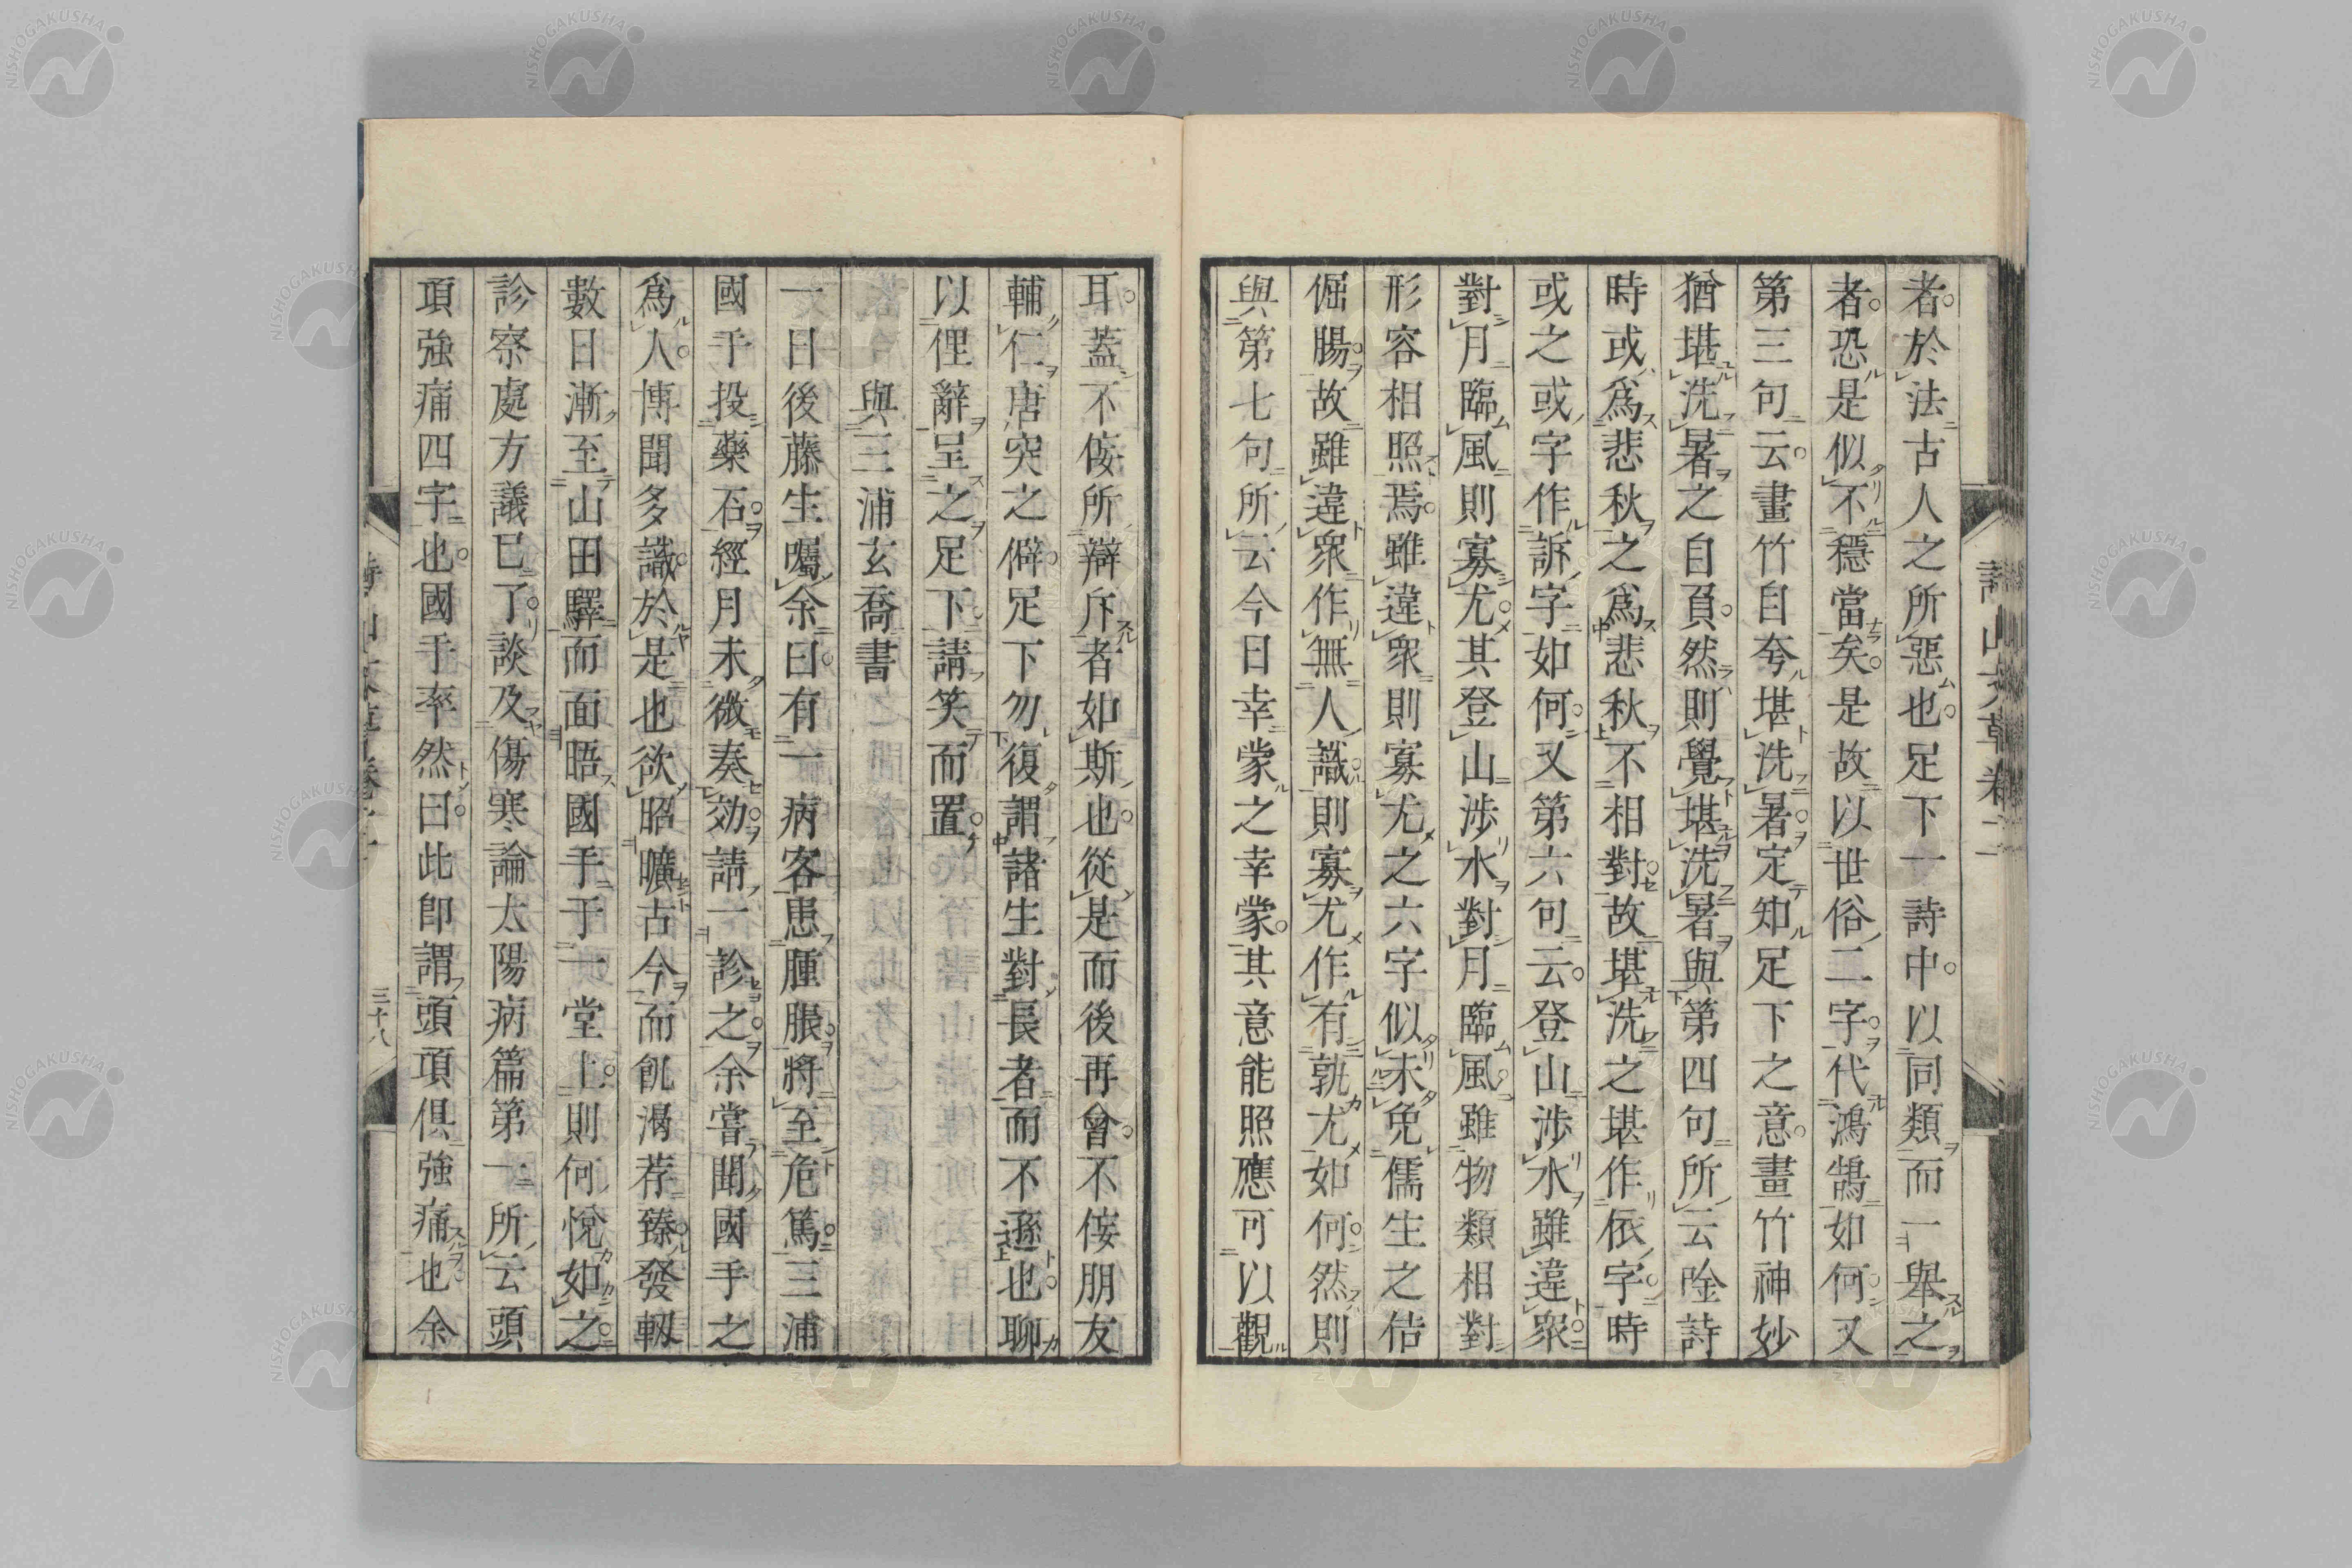 者於法古人之所惡也足下一詩中以同類而一舉之
者恐是似不穩當矣是故以世俗二字代鴻鵠如何又
第三句云畫竹自夸堪洗暑定知足下之意畫竹神妙
猶堪洗暑之自頁然則覺堪洗暑與第四句所云唫詩
時或爲悲秋之爲悲秋不相對故堪洗之堪作依字時
或之或字作訴字如何又第六句云登山涉水雖違衆
對月臨風則寡尤其登山涉水對月臨風雖物類相對
形容相照焉雖違衆則寡尤之六字似未免儒生之佶
倔腸故雖違衆作無人識則寡尤作有孰尤如何然則
與第七句所云今日幸蒙之幸蒙其意能照應可以觀
耳蓋不佞所辯斥者如斯也從是而後再會不佞朋友
輔仁唐突之僻足下勿復謂諸生對長者而不遜也聊
以俚辭呈之足下請笑而置
與三浦玄喬書
一日後藤生囑余曰有一病客患腫脹將至危篤三浦
國手投藥石經月未微奏効請一診之余嘗聞國手之
爲人博聞多識於是也欲昭曠古今而飢渴荐臻發軔
數日漸至山田驛而面晤國手于一堂上則何悅如之
診察處方議已了談及傷寒論太陽病篇第一所云頭
項強痛四字也國手卒然曰此卽謂頭項俱強痛也余
三十八
NISHOGAKUSHA